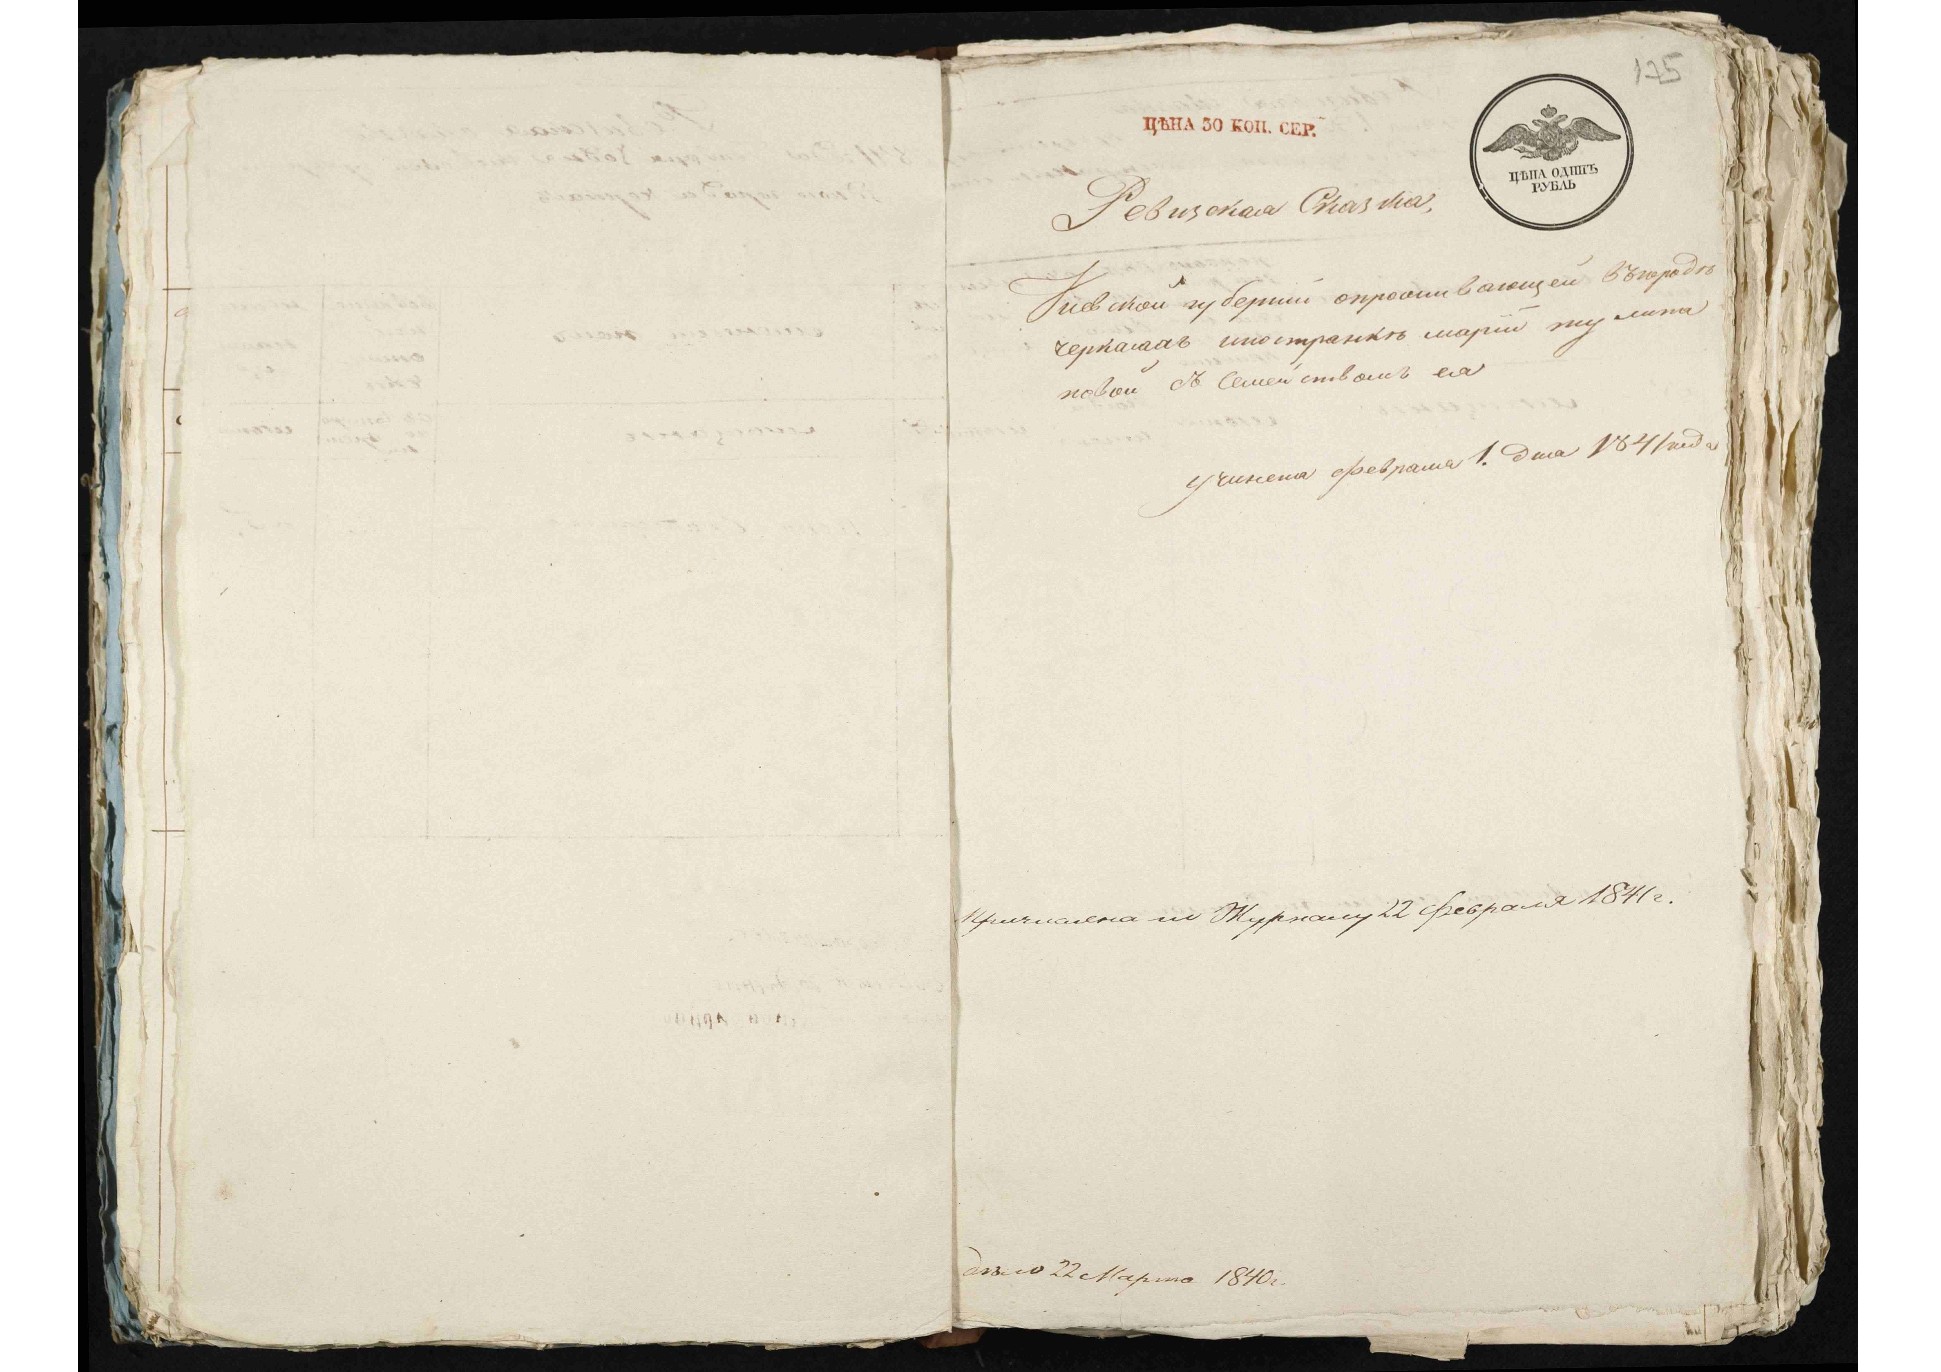 175
ЦѢНА 30 КОП. СЕР.
ЦѢНА ОДИНЪ
РУБЛЬ
Ревизская Сказка,
Киевской губерніи опроживающей въ городѣ
Черкасахъ иностранкѣ маріи жулика
новой съ Семействомъ ея
учинена февраля 1. дня 1841 года
Причислена по Журналу 22 февраля 1841 г.
дѣло 22 Марта 1840 г.